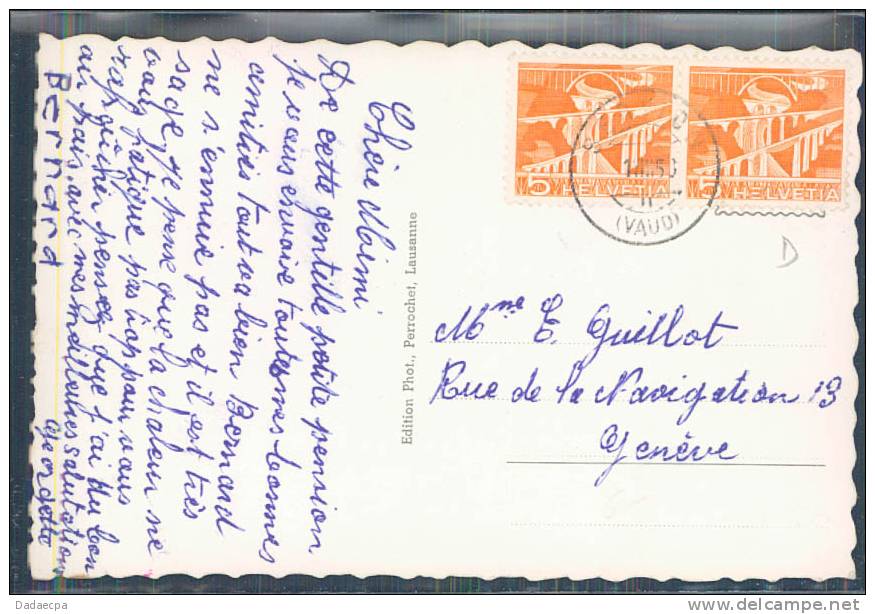 Chère Mimi
De cette gentille petite pension
je vous envoie toutes mes bonnes
amitiés tout va bien Bernard
ne s'ennuie pas et il est très
sage, je pense que la chaleur ne
vous fatigue pas trop pour vous
pensez que j'ai du bon
air frais, avec mes meilleures salutations
Georgette
BERNARD
Edition Phot., Perrochet, Lausanne
5 HELVETIA
5 HELVETIA
(VAUD)
D
Mme E. Guillot
Rue de la Navigation 13
Genève
Dadaecpa
www.delcampe.net